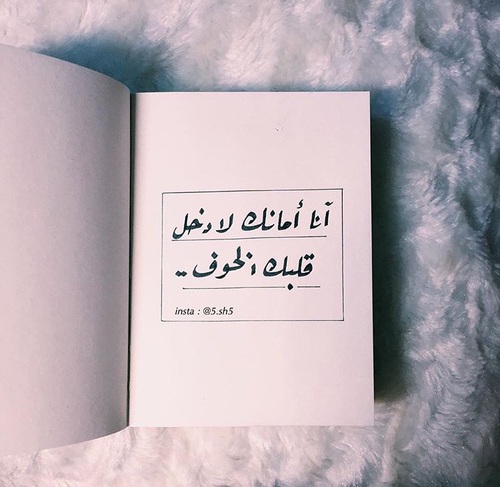 آنا أمانك لا دخل
قلبك الخوف ..
insta : @5.sh5